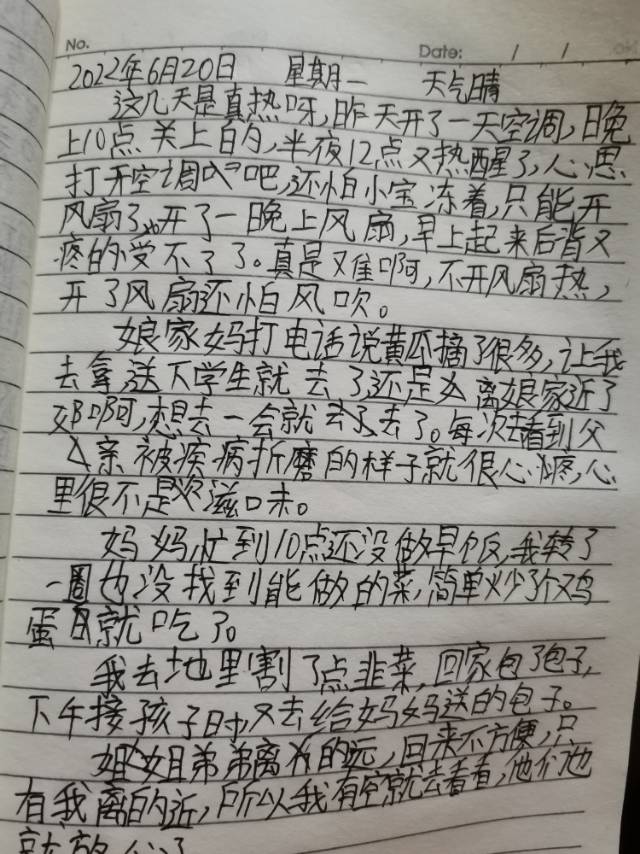 No. Date: / /
2022年6月20日 星期一 天气晴
这几天是真热呀,昨天开了一天空调,晚
上10点关上的,半夜12点又热醒了,心思
打开空调吹吹吧,还怕小宝冻着,只能开
风扇了,开了一晚上风扇,早上起来后背又
疼的受不了了。真是难啊,不开风扇热,
开了风扇还怕风吹。
娘家妈打电话说黄瓜摘了很多,让我
去拿送下学生就去了还是 离娘家近了
好啊,想去一会就去了。每次去看到父
亲被疾病折磨的样子就很心疼,心
里很不是滋味。
妈妈忙到10点还没做早饭,我转了
一圈也没找到能做的菜,简单炒了个鸡
蛋就吃了。
我去地里割了点韭菜,回家包了包子,
下午接孩子时,又去给妈妈送的包子。
姐姐弟弟离 的远,回来不方便,只
有我离的近,所以我有空就去看看,他们也
就放心了